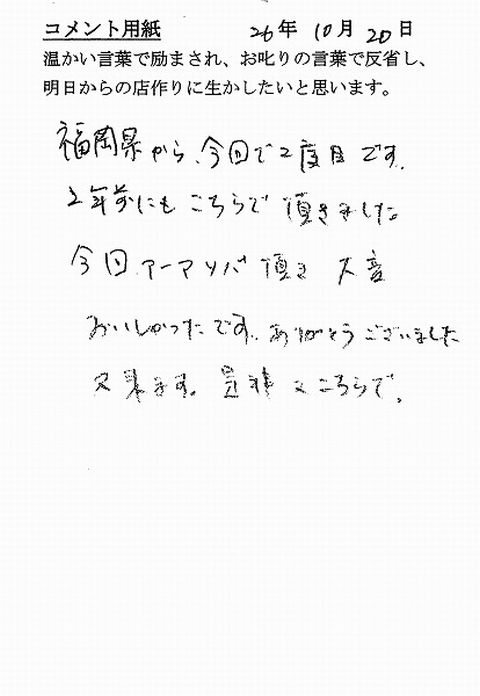 コメント用紙 26年 10月 20日
温かい言葉で励まされ、お叱りの言葉で反省し、
明日からの店作りに生かしたいと思います。
福岡県から、今回で2度目です。
2年前にもこちらで頂きました。
今回 アーアソバ 頂き 大変
おいしかったです。ありがとうございました
又来ます。是非 こちらで。